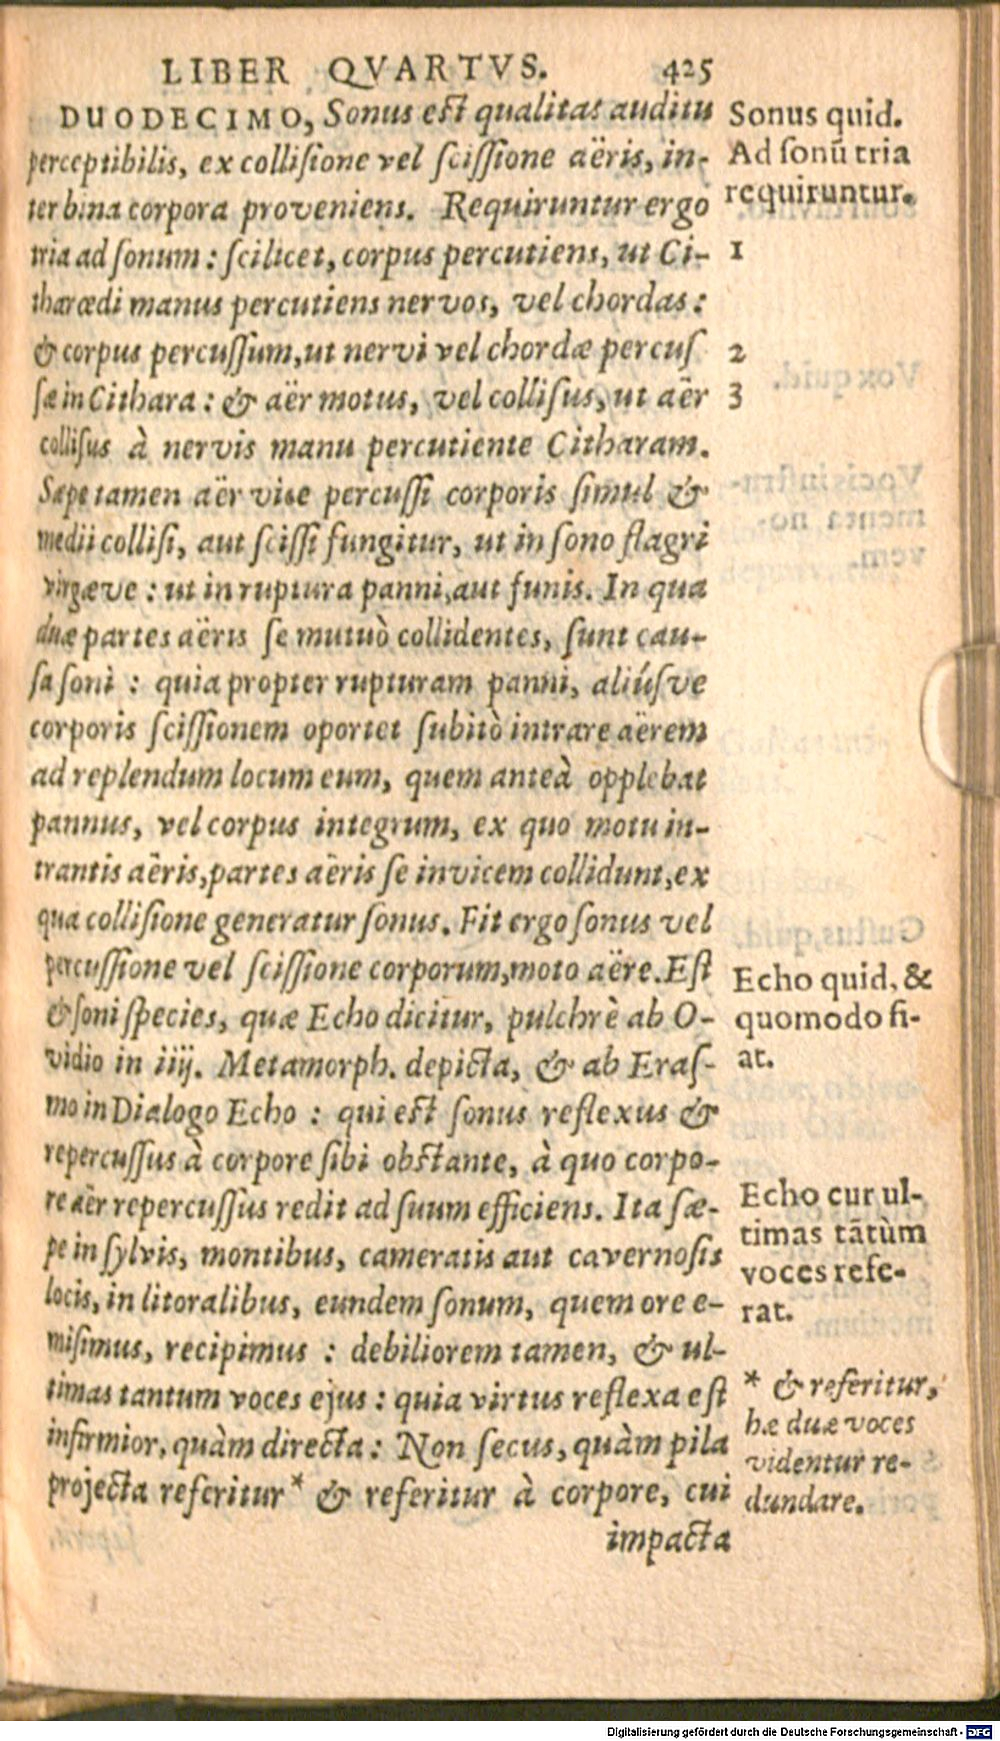 LIBER QVARTVS. 425
DUODECIMO, Sonus est qualitas auditu
perceptibilis, ex collisione vel scissione aëris, in-
ter bina corpora proveniens. Requiruntur ergo
tria ad sonum : scilicet, corpus percutiens, ut Ci-
tharœdi manus percutiens nervos, vel chordas :
& corpus percussum, ut nervi vel chordæ percus
sæ in Cithara : & aër motus, vel collisus, ut aër
collisus à nervis manu percutiente Citharam.
Sæpe tamen aër vice percussi corporis simul &
medii collisi, aut scissi fungitur, ut in sono flagri
virgæve : ut in ruptura panni, aut funis. In qua
duæ partes aëris se mutuò collidentes, sunt cau-
sa soni : quia propter rupturam panni, aliúsve
corporis scissionem oportet subitò intrare aërem
ad replendum locum eum, quem anteà opplebat
pannus, vel corpus integrum, ex quo motu in-
trantis aëris, partes aëris se invicem collidunt, ex
qua collisione generatur sonus. Fit ergo sonus vel
percussione vel scissione corporum, moto aëre. Est
& soni species, quæ Echo dicitur, pulchrè ab O-
vidio in iiij. Metamorph. depicta, & ab Eras-
mo in Dialogo Echo : qui est sonus reflexus &
repercussus à corpore sibi obstante, à quo corpo-
re aër repercussus redit ad suum efficiens. Ita sæ-
pe in sylvis, montibus, cameratis aut cavernosis
locis, in litoralibus, eundem sonum, quem ore e-
misimus, recipimus : debiliorem tamen, & ul-
timas tantum voces ejus : quia virtus reflexa est
infirmior, quàm directa : Non secus, quàm pila
projecta referitur * & referitur à corpore, cui
impacta
Sonus quid.
Ad sonū tria
requiruntur.
1
2
3
Echo quid, &
quomodo fi-
at.
Echo cur ul-
timas tātùm
voces refe-
rat.
* & referitur,
hæ duæ voces
videntur re-
dundare.
Digitalisierung gefördert durch die Deutsche Forschungsgemeinschaft - DFG